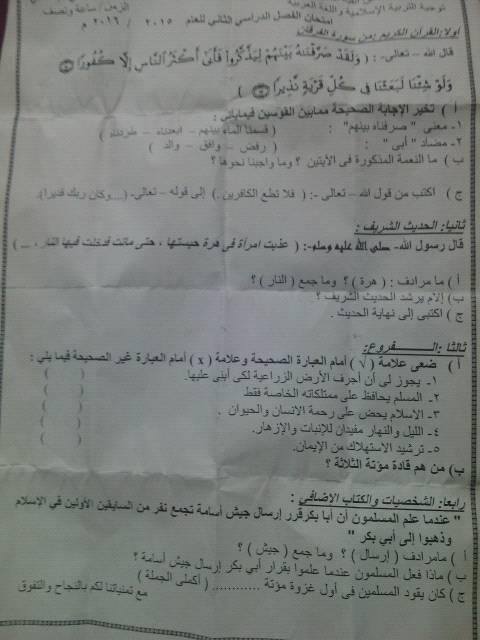 توجية التربية الإسلامية واللغة العربية
الزمن/ ساعة ونصف
امتحان الفصل الدراسي الثاني للعام ٢٠١٥ / ٢٠١٦ م
اولا: القرآن الكريم : من سورة الفرقان
قال الله – تعالى- : ( وَلَقَدْ صَرَّفْنَاهُ بَيْنَهُمْ لِيَذَّكَّرُوا فَأَبَىٰ أَكْثَرُ النَّاسِ إِلَّا كُفُورًا
وَلَوْ شِئْنَا لَبَعَثْنَا فِي كُلِّ قَرْيَةٍ نَذِيرًا )
أ ) تخير الإجابة الصحيحة ممابين القوسين فيماياتي :
١- معنى " صرفناه بينهم" : ( قسمنا الماء بينهم – ابعدناه – طردناه )
٢- مضاد " أبى " : ( رفض – وافق – والد )
ب ) ما النعمة المذكورة فى الأيتين ؟ وما واجبنا نحوها ؟
ج ) اكتب من قول الله – تعالى -: ( فلا تطع الكافرين .) إلى قوله – تعالى- (....وكان ربك قديرا).
ثانيا: الحديث الشريف :
قال رسول الله- صلى الله عليه وسلم-: ( عذبت امرأة فى هرة حبستها ، حتى ماتت فدخلت فيها النار، ... )
أ ) ما مرادف : ( هرة ) ؟ وما جمع ( النار ) ؟
ب) إلام يرشد الحديث الشريف ؟
ج ) اكتبى إلى نهاية الحديث .
ثالثا :الـــفـــروع:
أ ) ضعى علامة ( √ ) أمام العبارة الصحيحة وعلامة ( x ) أمام العبارة غير الصحيحة فيما يلي :
١- يجوز لى أن أجرف الأرض الزراعية لكى أبنى عليها. ( )
٢- المسلم يحافظ على ممتلكاته الخاصة فقط ( )
٣- الاسلام يحض على رحمة الانسان والحيوان . ( )
٤- الليل والنهار مفيدان للإنبات والإزهار. ( )
٥- ترشيد الاستهلاك من الإيمان. ( )
ب) من هم قادة مؤتة الثلاثة ؟
رابعا: الشخصيات والكتاب الاضافي :
" عندما علم المسلمون أن أبا بكرقرر إرسال جيش أسامة تجمع نفر من السابقين الأولين في الاسلام
وذهبوا إلى أبي بكر "
أ ) مامرادف ( إرسال ) ؟ وما جمع ( جيش ) ؟
ب ) ماذا فعل المسلمون عندما علموا بقرار أبي بكر إرسال جيش أسامة ؟
ج ) كان يقود المسلمين فى أول غزوة مؤتة ............ ( أكملى الجملة )
مع تمنياتنا لكم بالنجاح والتفوق